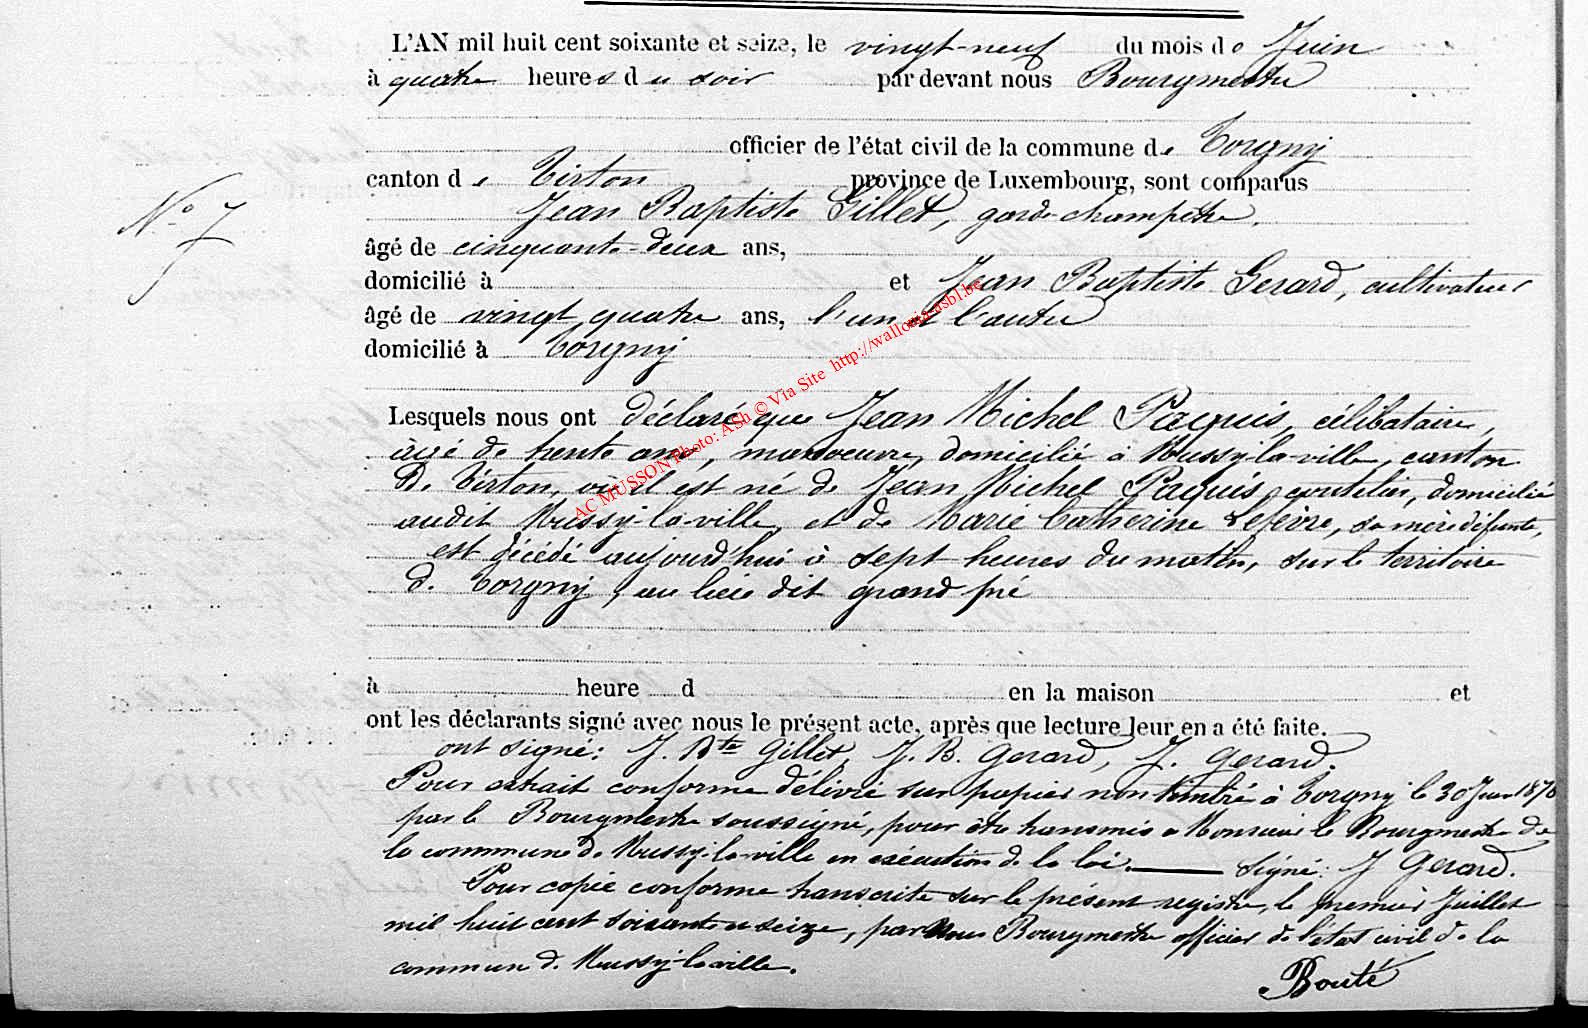 L'AN mil huit cent soixante et seize, le vingt-neuf du mois de Juin
à quatre heures du soir par devant nous Bourgmestre
officier de l'état civil de la commune de Torgny
canton de Virton province de Luxembourg, sont comparus
N° 7
Jean Baptiste Gillet, garde-champêtre,
âgé de cinquante-deux ans,
domicilié à et Jean Baptiste Gerard, cultivateur
âgé de vingt quatre ans, l'un et l'autre
domicilié à Torgny
Lesquels nous ont déclaré que Jean Michel Paquis, célibataire,
âgé de trente ans, manoeuvre, domicilié à Mussy-la-ville, canton
de Virton, où il est né de Jean Michel Paquis, coutelier, domicilié
audit Mussy-la-ville, et de Marie Catherine Lefèvre, sa mère défunte,
est décédé aujourd'hui à sept heures du matin, sur le territoire
de Torgny, au lieu dit grand pré
à heure d en la maison et
ont les déclarants signé avec nous le présent acte, après que lecture leur en a été faite.
ont signé: J. Bte Gillet, J. B. Gerard, J. Gerard.
Pour extrait conforme délivré sur papier non timbré à Torgny le 30 Juin 1876
par le Bourgmestre soussigné, pour être transmis à Monsieur le Bourgmestre de
la commune de Mussy-la-ville en exécution de la loi. Signé: J Gerard.
Pour copie conforme transcrite sur le présent registre, le premier Juillet
mil huit cent soixante et seize, par Nous Bourgmestre officier de l'état civil de la
commune de Mussy-la-ville.
Bouté
AC MUSSON Photo: ASh © Via Site http://wallonia-asbl.be